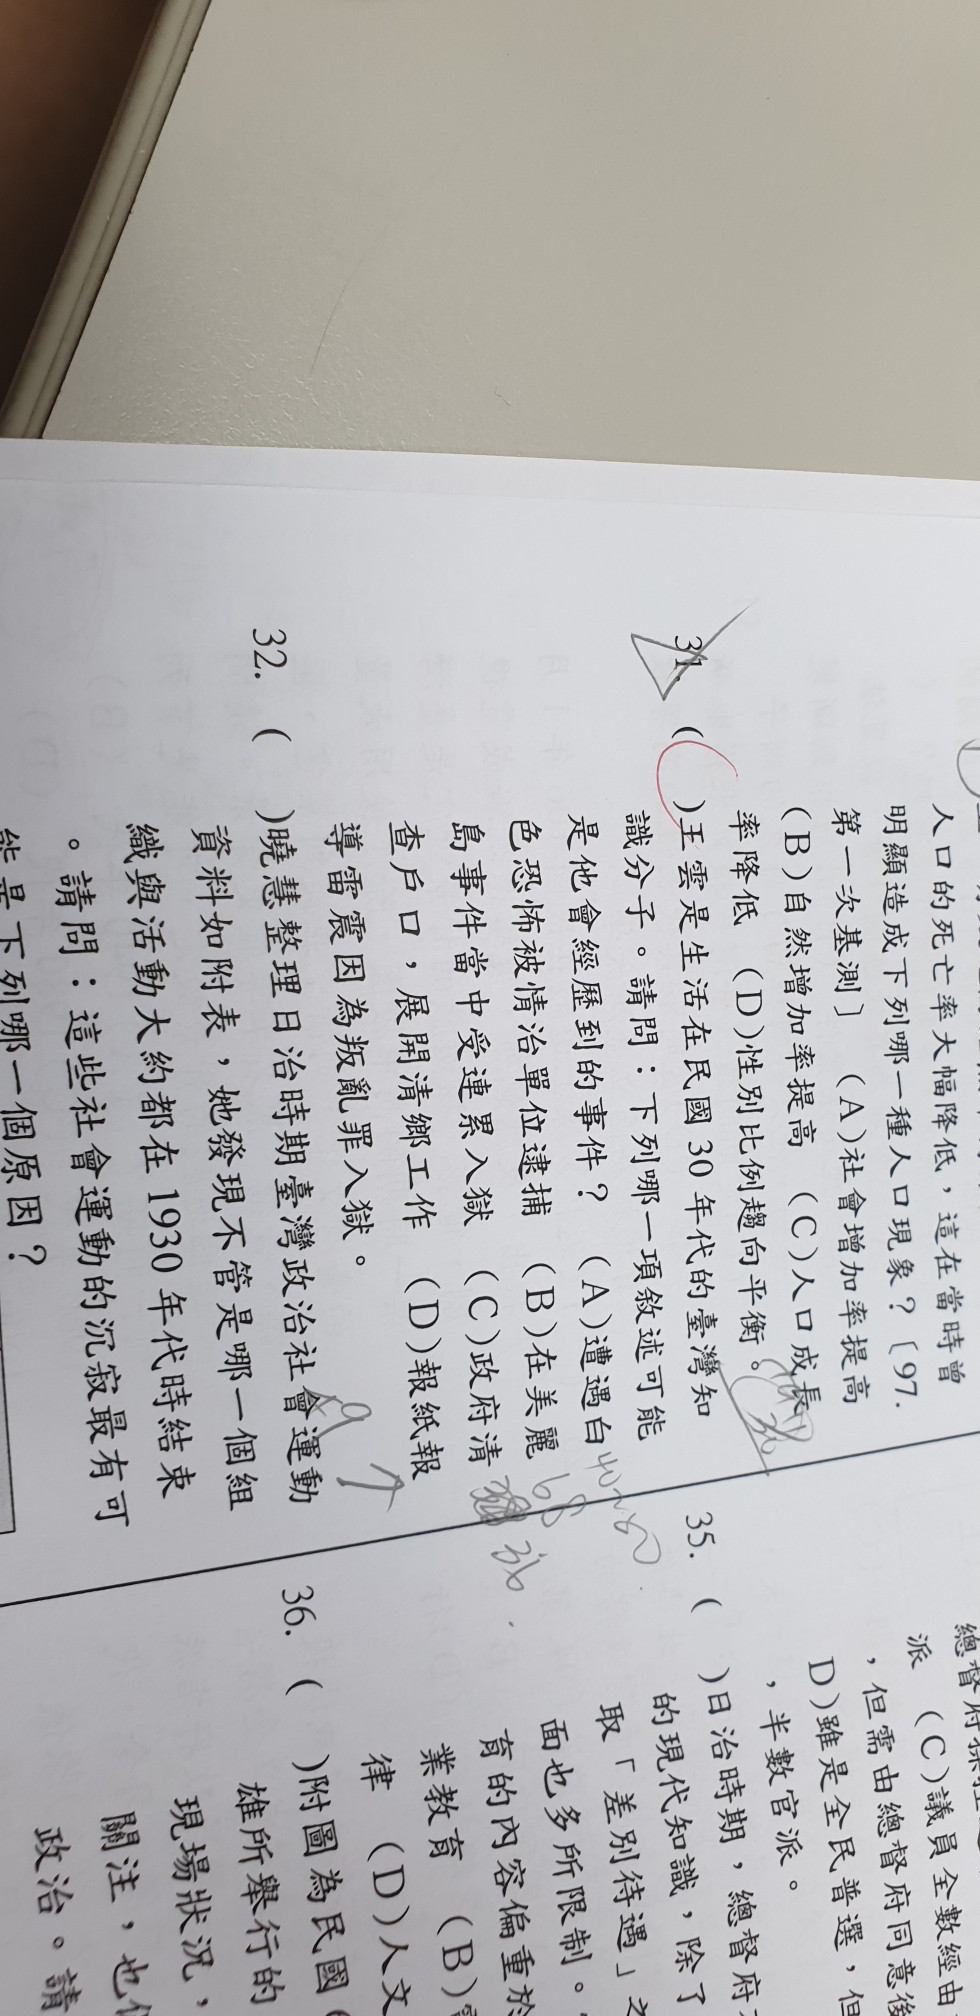 人口的死亡率大幅降低，這在當時曾
明顯造成下列哪一種人口現象？〔97.
第一次基測〕 (A)社會增加率提高
(B)自然增加率提高 (C)人口成長
率降低 (D)性別比例趨向平衡。
31. ( )王雲是生活在民國30年代的臺灣知
識分子。請問：下列哪一項敘述可能
是他會經歷到的事件？ (A)遭遇白
色恐怖被情治單位逮捕 (B)在美麗
島事件當中受連累入獄 (C)政府清
查戶口，展開清鄉工作 (D)報紙報
導雷震因為叛亂罪入獄。
40~50
68
36
32. ( )曉慧整理日治時期臺灣政治社會運動
資料如附表，她發現不管是哪一個組
織與活動大約都在1930年代時結束
。請問：這些社會運動的沉寂最有可
能是下列哪一個原因？
總督府
派 (C)議員全數經由
，但需由總督府同意後
D)雖是全民普選，但
，半數官派。
35. ( )日治時期，總督府
的現代知識，除了
取「差別待遇」之
面也多所限制。
育的內容偏重於
業教育 (B)
律 (D)人文
36. ( )附圖為民國
雄所舉行的
現場狀況，
關注，也
政治。請